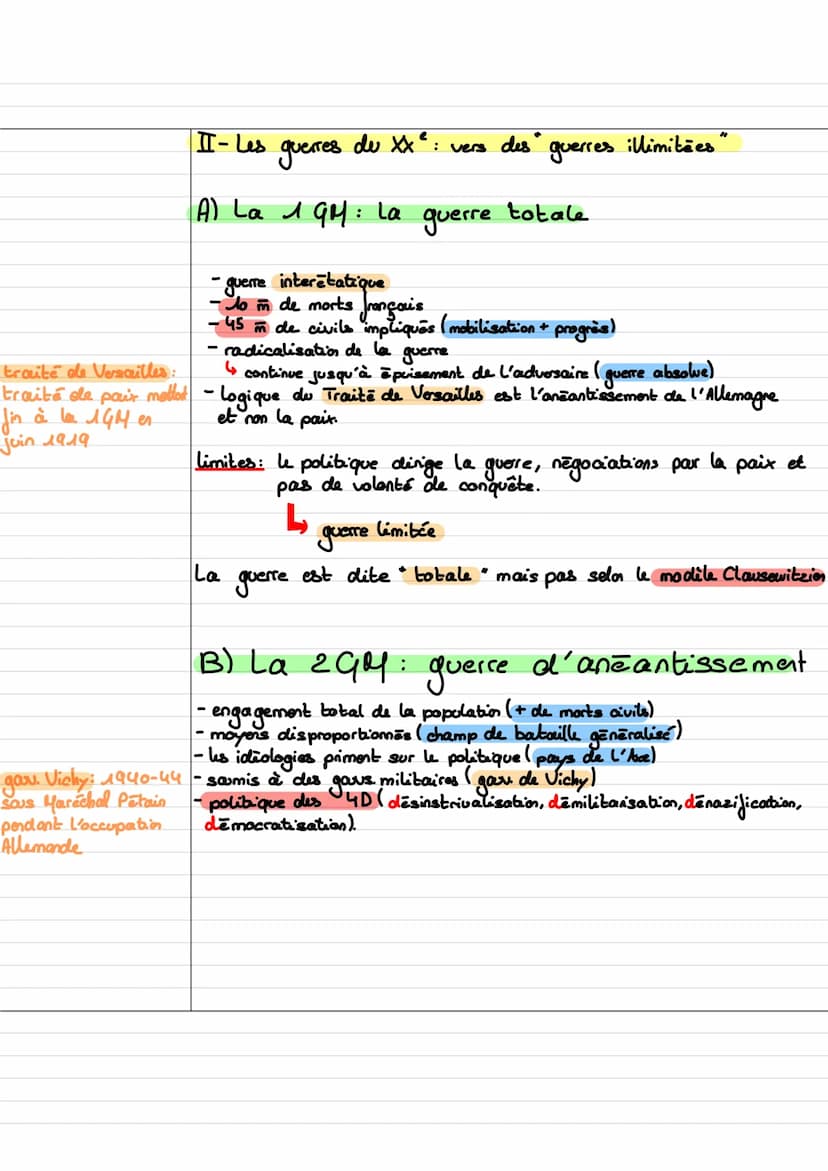 II- Les guerres du XXe : vers des "guerres illimitées"
A) La 1GM : la guerre totale
- guerre interétatique
- 10 m̄ de morts français
- 45 m̄ de civils impliqués (mobilisation + progrès)
- radicalisation de la guerre
↳ continue jusqu'à épuisement de l'adversaire (guerre absolue)
- Logique du Traité de Versailles est l'anéantissement de l'Allemagne
et non la paix.
traité de Versailles :
traité de paix mettant
fin à la 1GM en
juin 1919
limites : le politique dirige la guerre, négociations par la paix et
pas de volonté de conquête.
↳ guerre limitée
La guerre est dite "totale" mais pas selon le modèle Clausewitzien
B) La 2GM : guerre d'anéantissement
- engagement total de la population (+ de morts civils)
- moyens disproportionnés (champ de bataille généralisé)
- les idéologies priment sur le politique (pays de l'Axe)
- soumis à des gouv militaires (gouv de Vichy)
- politique des 4D (désinstrivalisation, démilitarisation, dénazification,
démocratisation).
gouv. Vichy : 1940-44
sous Maréchal Pétain
pendant l'occupation
Allemande